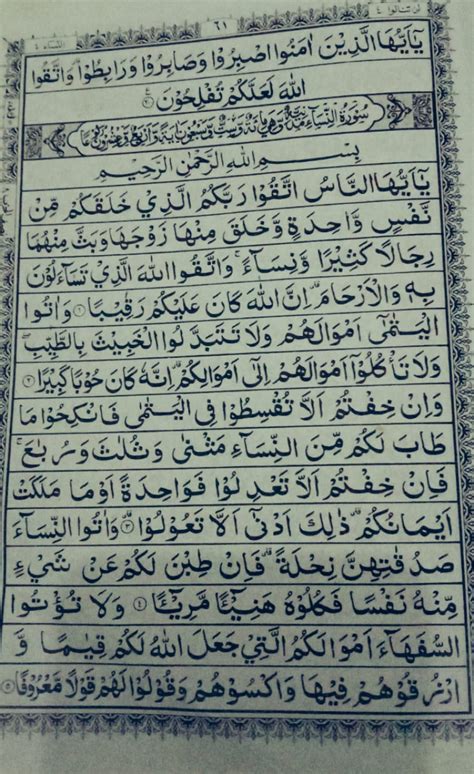 لن تنالوا ٤ ٦١ النساء ٤
يٰٓاَيُّهَا الَّذِيْنَ اٰمَنُوا اصْبِرُوْا وَصَابِرُوْا وَرَابِطُوْا وَاتَّقُوا
اللّٰهَ لَعَلَّكُمْ تُفْلِحُوْنَ
سُوْرَةُ النِّسَآءِ مَدَنِيَّةٌ وَهِيَ مِائَةٌ وَسِتٌّ وَسَبْعُوْنَ اٰيَةً وَاَرْبَعٌ وَعِشْرُوْنَ
بِسْمِ اللّٰهِ الرَّحْمٰنِ الرَّحِيْمِ
يٰٓاَيُّهَا النَّاسُ اتَّقُوْا رَبَّكُمُ الَّذِيْ خَلَقَكُمْ مِّنْ
نَّفْسٍ وَّاحِدَةٍ وَّخَلَقَ مِنْهَا زَوْجَهَا وَبَثَّ مِنْهُمَا
رِجَالًا كَثِيْرًا وَّنِسَآءً ۚ وَاتَّقُوا اللّٰهَ الَّذِيْ تَسَآءَلُوْنَ
بِهٖ وَالْاَرْحَامَ ۗ اِنَّ اللّٰهَ كَانَ عَلَيْكُمْ رَقِيْبًا ۝١ وَاٰتُوا
الْيَتٰمٰٓى اَمْوَالَهُمْ وَلَا تَتَبَدَّلُوا الْخَبِيْثَ بِالطَّيِّبِ ۖ
وَلَا تَاْكُلُوْٓا اَمْوَالَهُمْ اِلٰٓى اَمْوَالِكُمْ ۗ اِنَّهٗ كَانَ حُوْبًا كَبِيْرًا ۝٢
وَاِنْ خِفْتُمْ اَلَّا تُقْسِطُوْا فِى الْيَتٰمٰى فَانْكِحُوْا مَا
طَابَ لَكُمْ مِّنَ النِّسَآءِ مَثْنٰى وَثُلٰثَ وَرُبٰعَ ۚ
فَاِنْ خِفْتُمْ اَلَّا تَعْدِلُوْا فَوَاحِدَةً اَوْ مَا مَلَكَتْ
اَيْمَانُكُمْ ۗ ذٰلِكَ اَدْنٰٓى اَلَّا تَعُوْلُوْا ۝٣ وَاٰتُوا النِّسَآءَ
صَدُقٰتِهِنَّ نِحْلَةً ۗ فَاِنْ طِبْنَ لَكُمْ عَنْ شَيْءٍ
مِّنْهُ نَفْسًا فَكُلُوْهُ هَنِيْٓئًا مَّرِيْٓئًا ۝٤ وَلَا تُؤْتُوا
السُّفَهَآءَ اَمْوَالَكُمُ الَّتِيْ جَعَلَ اللّٰهُ لَكُمْ قِيٰمًا وَّ
ارْزُقُوْهُمْ فِيْهَا وَاكْسُوْهُمْ وَقُوْلُوْا لَهُمْ قَوْلًا مَّعْرُوْفًا ۝٥